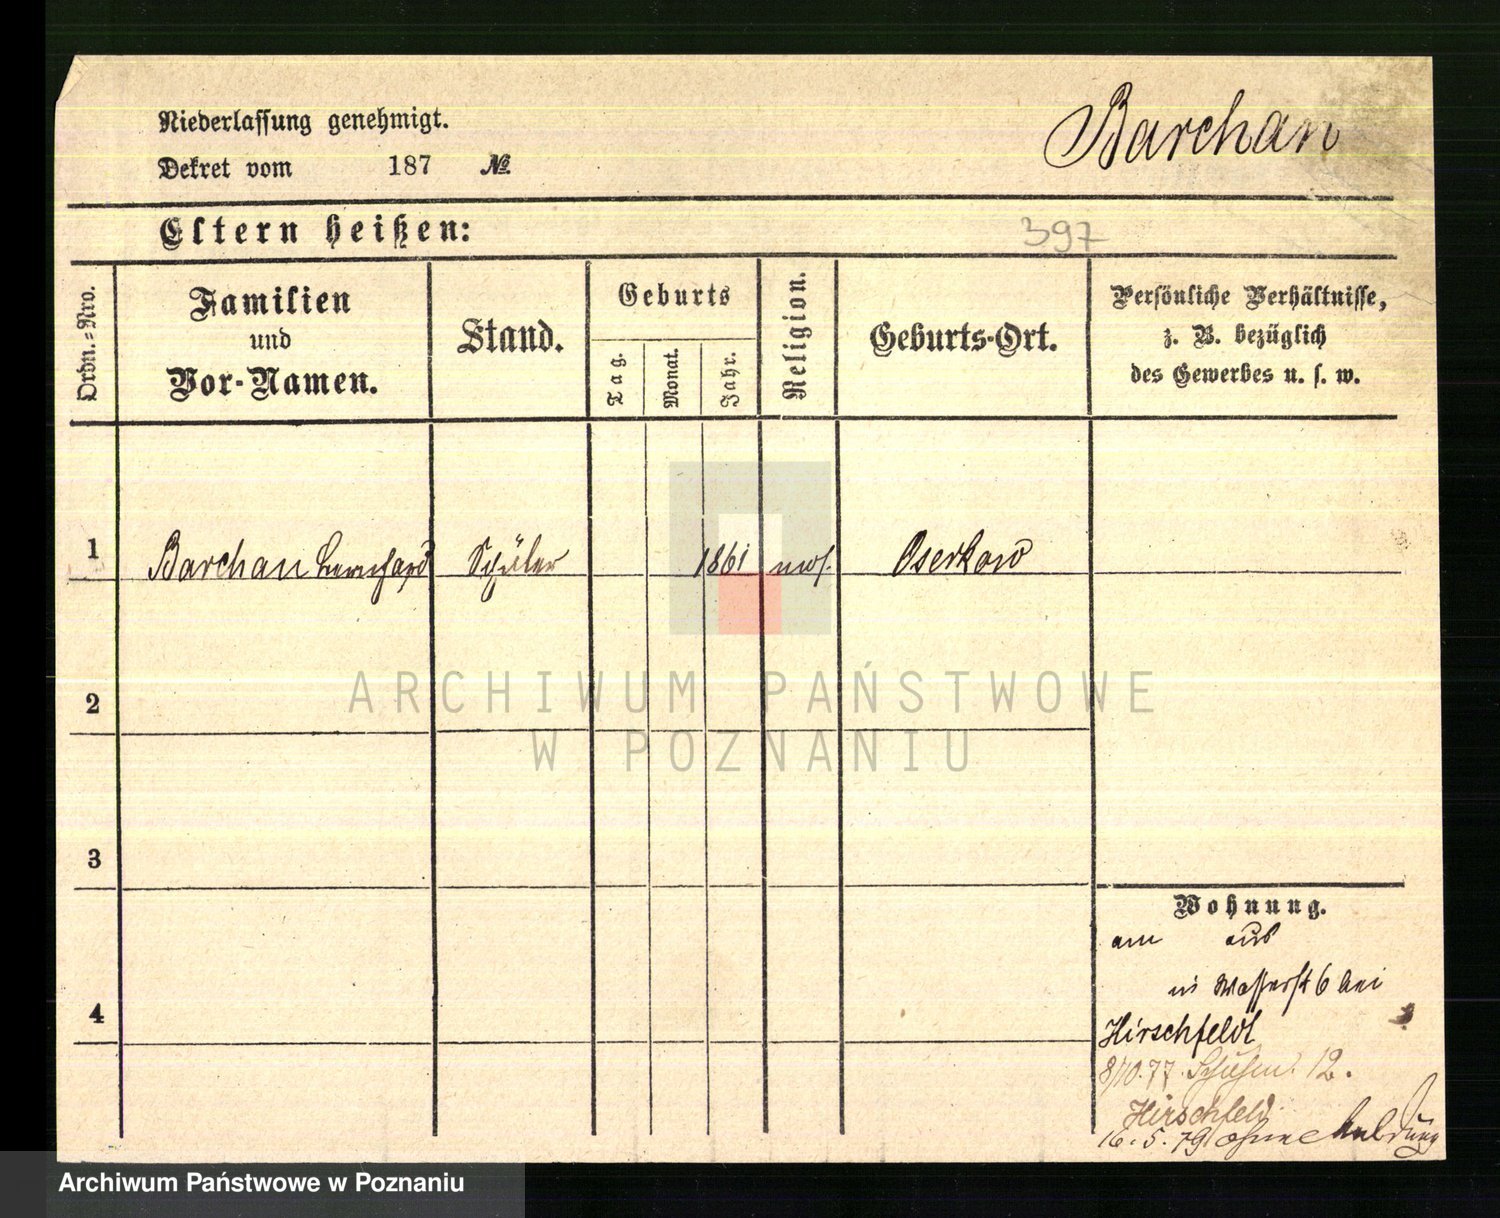 Niederlassung genehmigt.
Barchan
Dekret vom 187 №
Eltern heißen:
397
Ordn.=Nro.
Familien
und
Vor-Namen.
Stand.
Geburts
Tag.
Monat.
Jahr.
Religion.
Geburts-Ort.
Persönliche Verhältnisse,
z. B. bezüglich
des Gewerbes u. s. w.
1 Barchan Bernhard Schüler 1861 mos. Oserkow
2
3
4
ARCHIWUM PAŃSTWOWE
W POZNANIU
Wohnung.
am aus
in Wasserst 6 bei
Hirschfeldt
8/10.77. Schuhm. 12.
Hirschfeld.
16.5.79 ohne Meldung
Archiwum Państwowe w Poznaniu